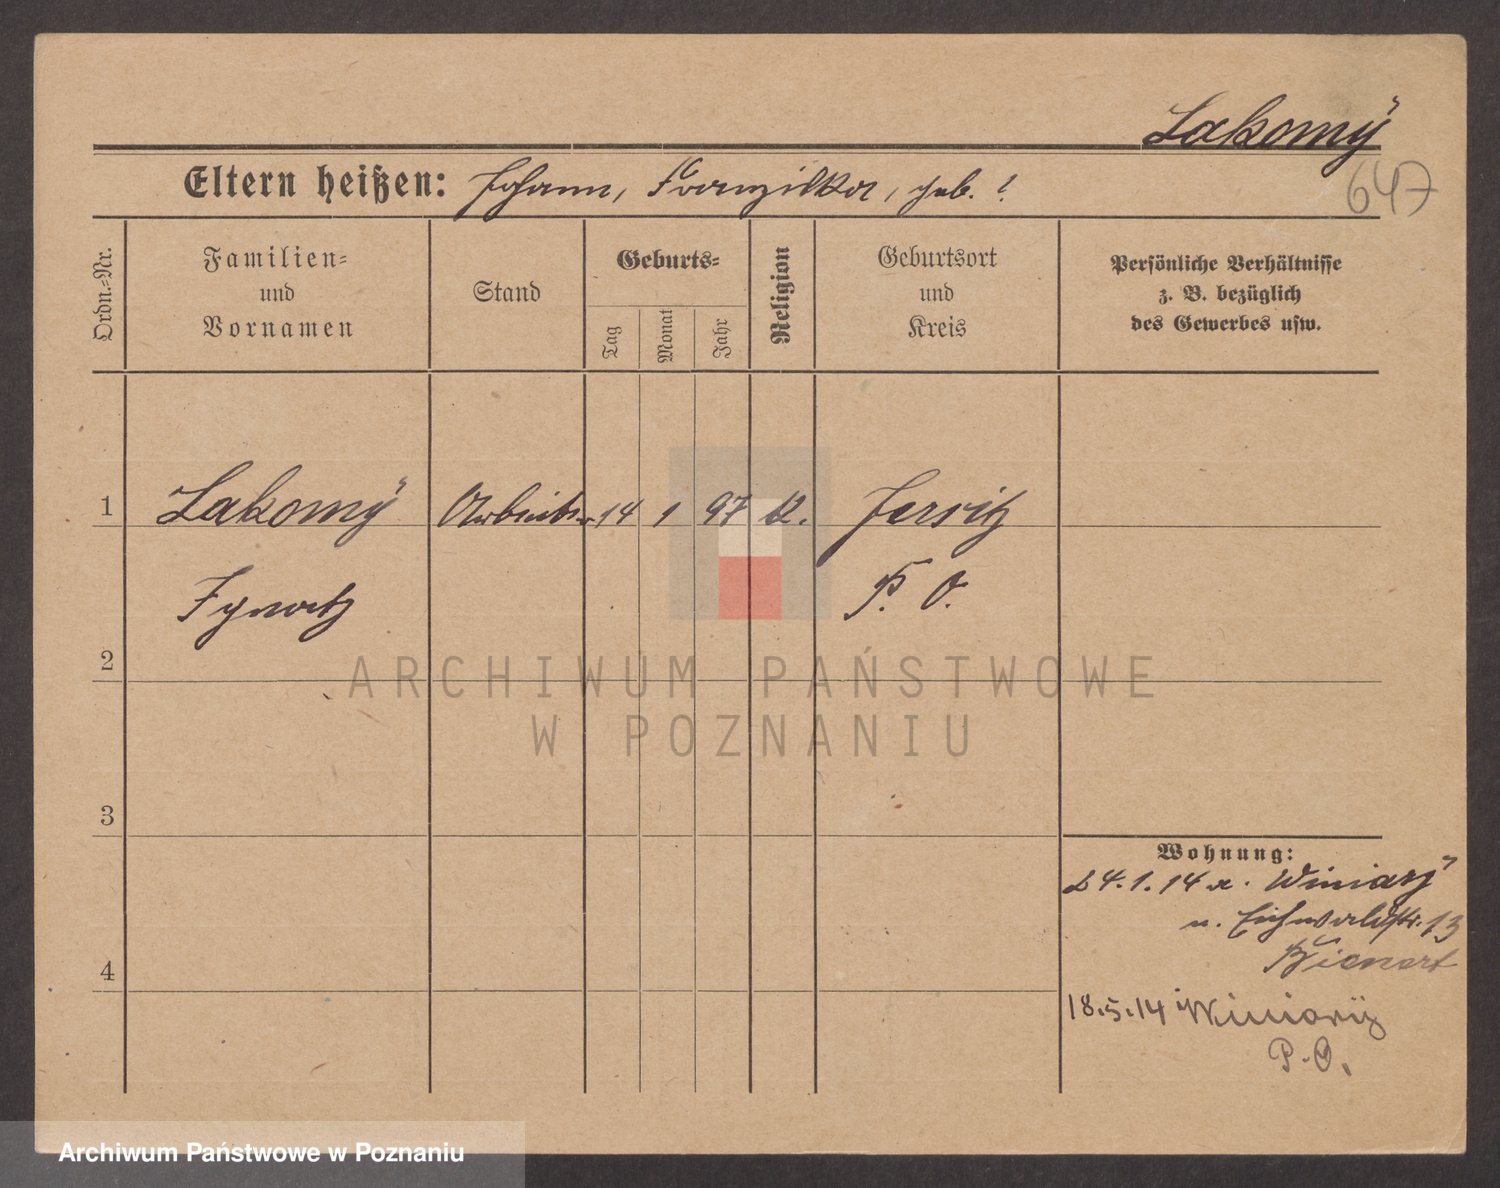 Lakomÿ
647
Eltern heißen: Johann, Franziska, geb. ?
Ordn.-Nr.
Familien-
und
Vornamen
Stand
Geburts-
Tag
Monat
Jahr
Religion
Geburtsort
und
Kreis
Persönliche Verhältnisse
z. B. bezüglich
des Gewerbes usw.
1 Lakomÿ Arbeiter 14 1 97 k. Jersitz
Ignatz P. O.
2
3
4
ARCHIWUM PAŃSTWOWE
W POZNANIU
Wohnung:
24.1.14 a. Winiarÿ
n. Eichwaldstr. 13
Bienert
18.5.14 Winiarÿ
P.O.
Archiwum Państwowe w Poznaniu